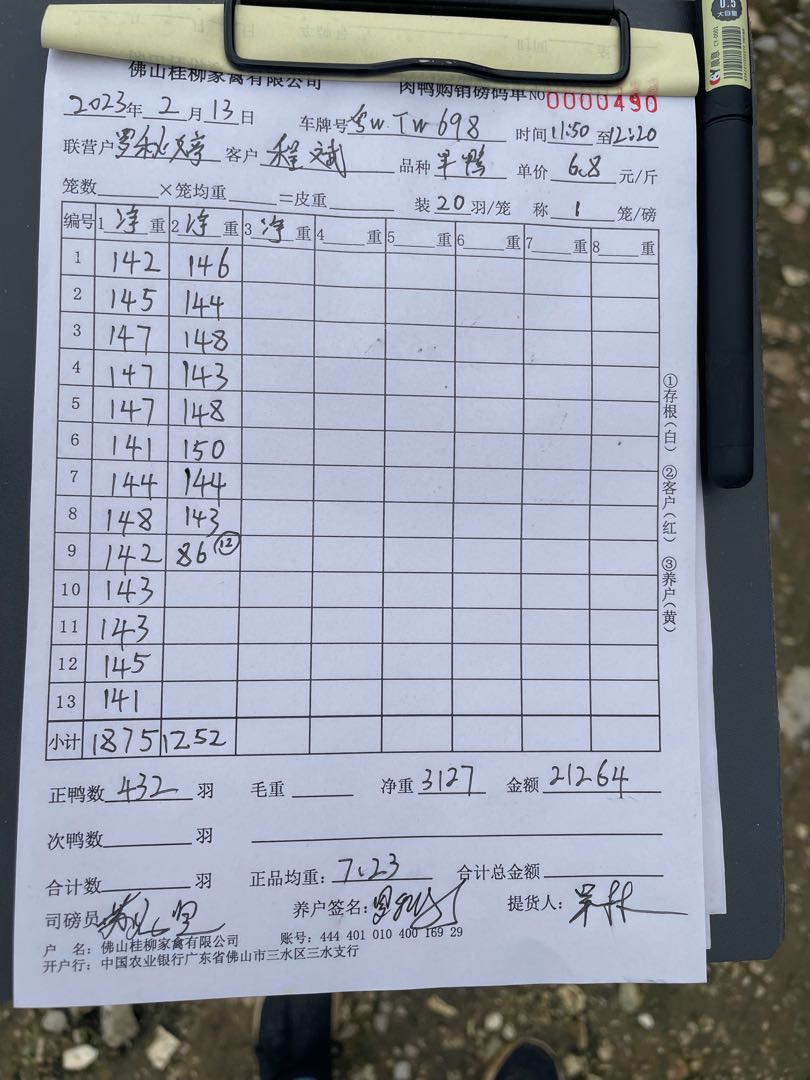 佛山桂柳家禽有限公司 肉鸭购销磅码单 NO 0000490
2023年 2 月 13 日 车牌号 粤W TW698 时间 11:50 至 12:20
联营户 罗秋婷 客户 程斌 品种 半鸭 单价 6.8 元/斤
笼数 ×笼均重 =皮重 装 20 羽/笼 称 1 笼/磅
编号 1 净 重 2 净 重 3 净 重 4 重 5 重 6 重 7 重 8 重
1 142 146
2 145 144
3 147 148
4 147 143
5 147 148
6 141 150
7 144 144
8 148 143
9 142 86 ⑫
10 143
11 143
12 145
13 141
小计 1875 1252
正鸭数 432 羽 毛重 净重 3127 金额 21264
次鸭数 羽
合计数 羽 正品均重: 7.23 合计总金额
司磅员 养户签名: 提货人:
户 名: 佛山桂柳家禽有限公司 账号: 444 401 010 400 169 29
开户行: 中国农业银行广东省佛山市三水区三水支行
①存根(白) ②客户(红) ③养户(黄)
0.5
大容量